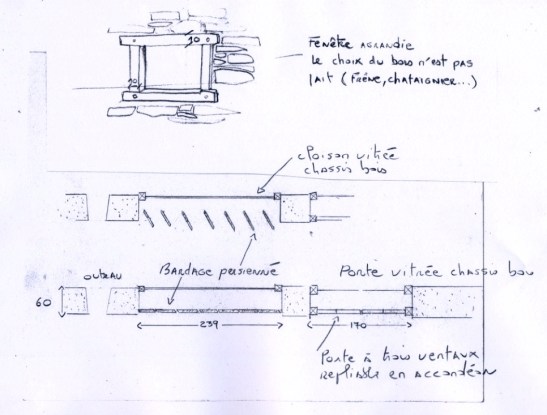 10
10
FENÊTRE AGRANDIE
LE CHOIX DU BOIS N'EST PAS
FAIT (FRÊNE, CHATAIGNIER...)
CLOISON VITRÉE
CHASSIS BOIS
BARDAGE PERSIENNÉ
PORTE VITRÉE CHASSIS BOIS
60
239
170
PORTE À TROIS VENTAUX
REPLIABLE EN ACCORDÉON